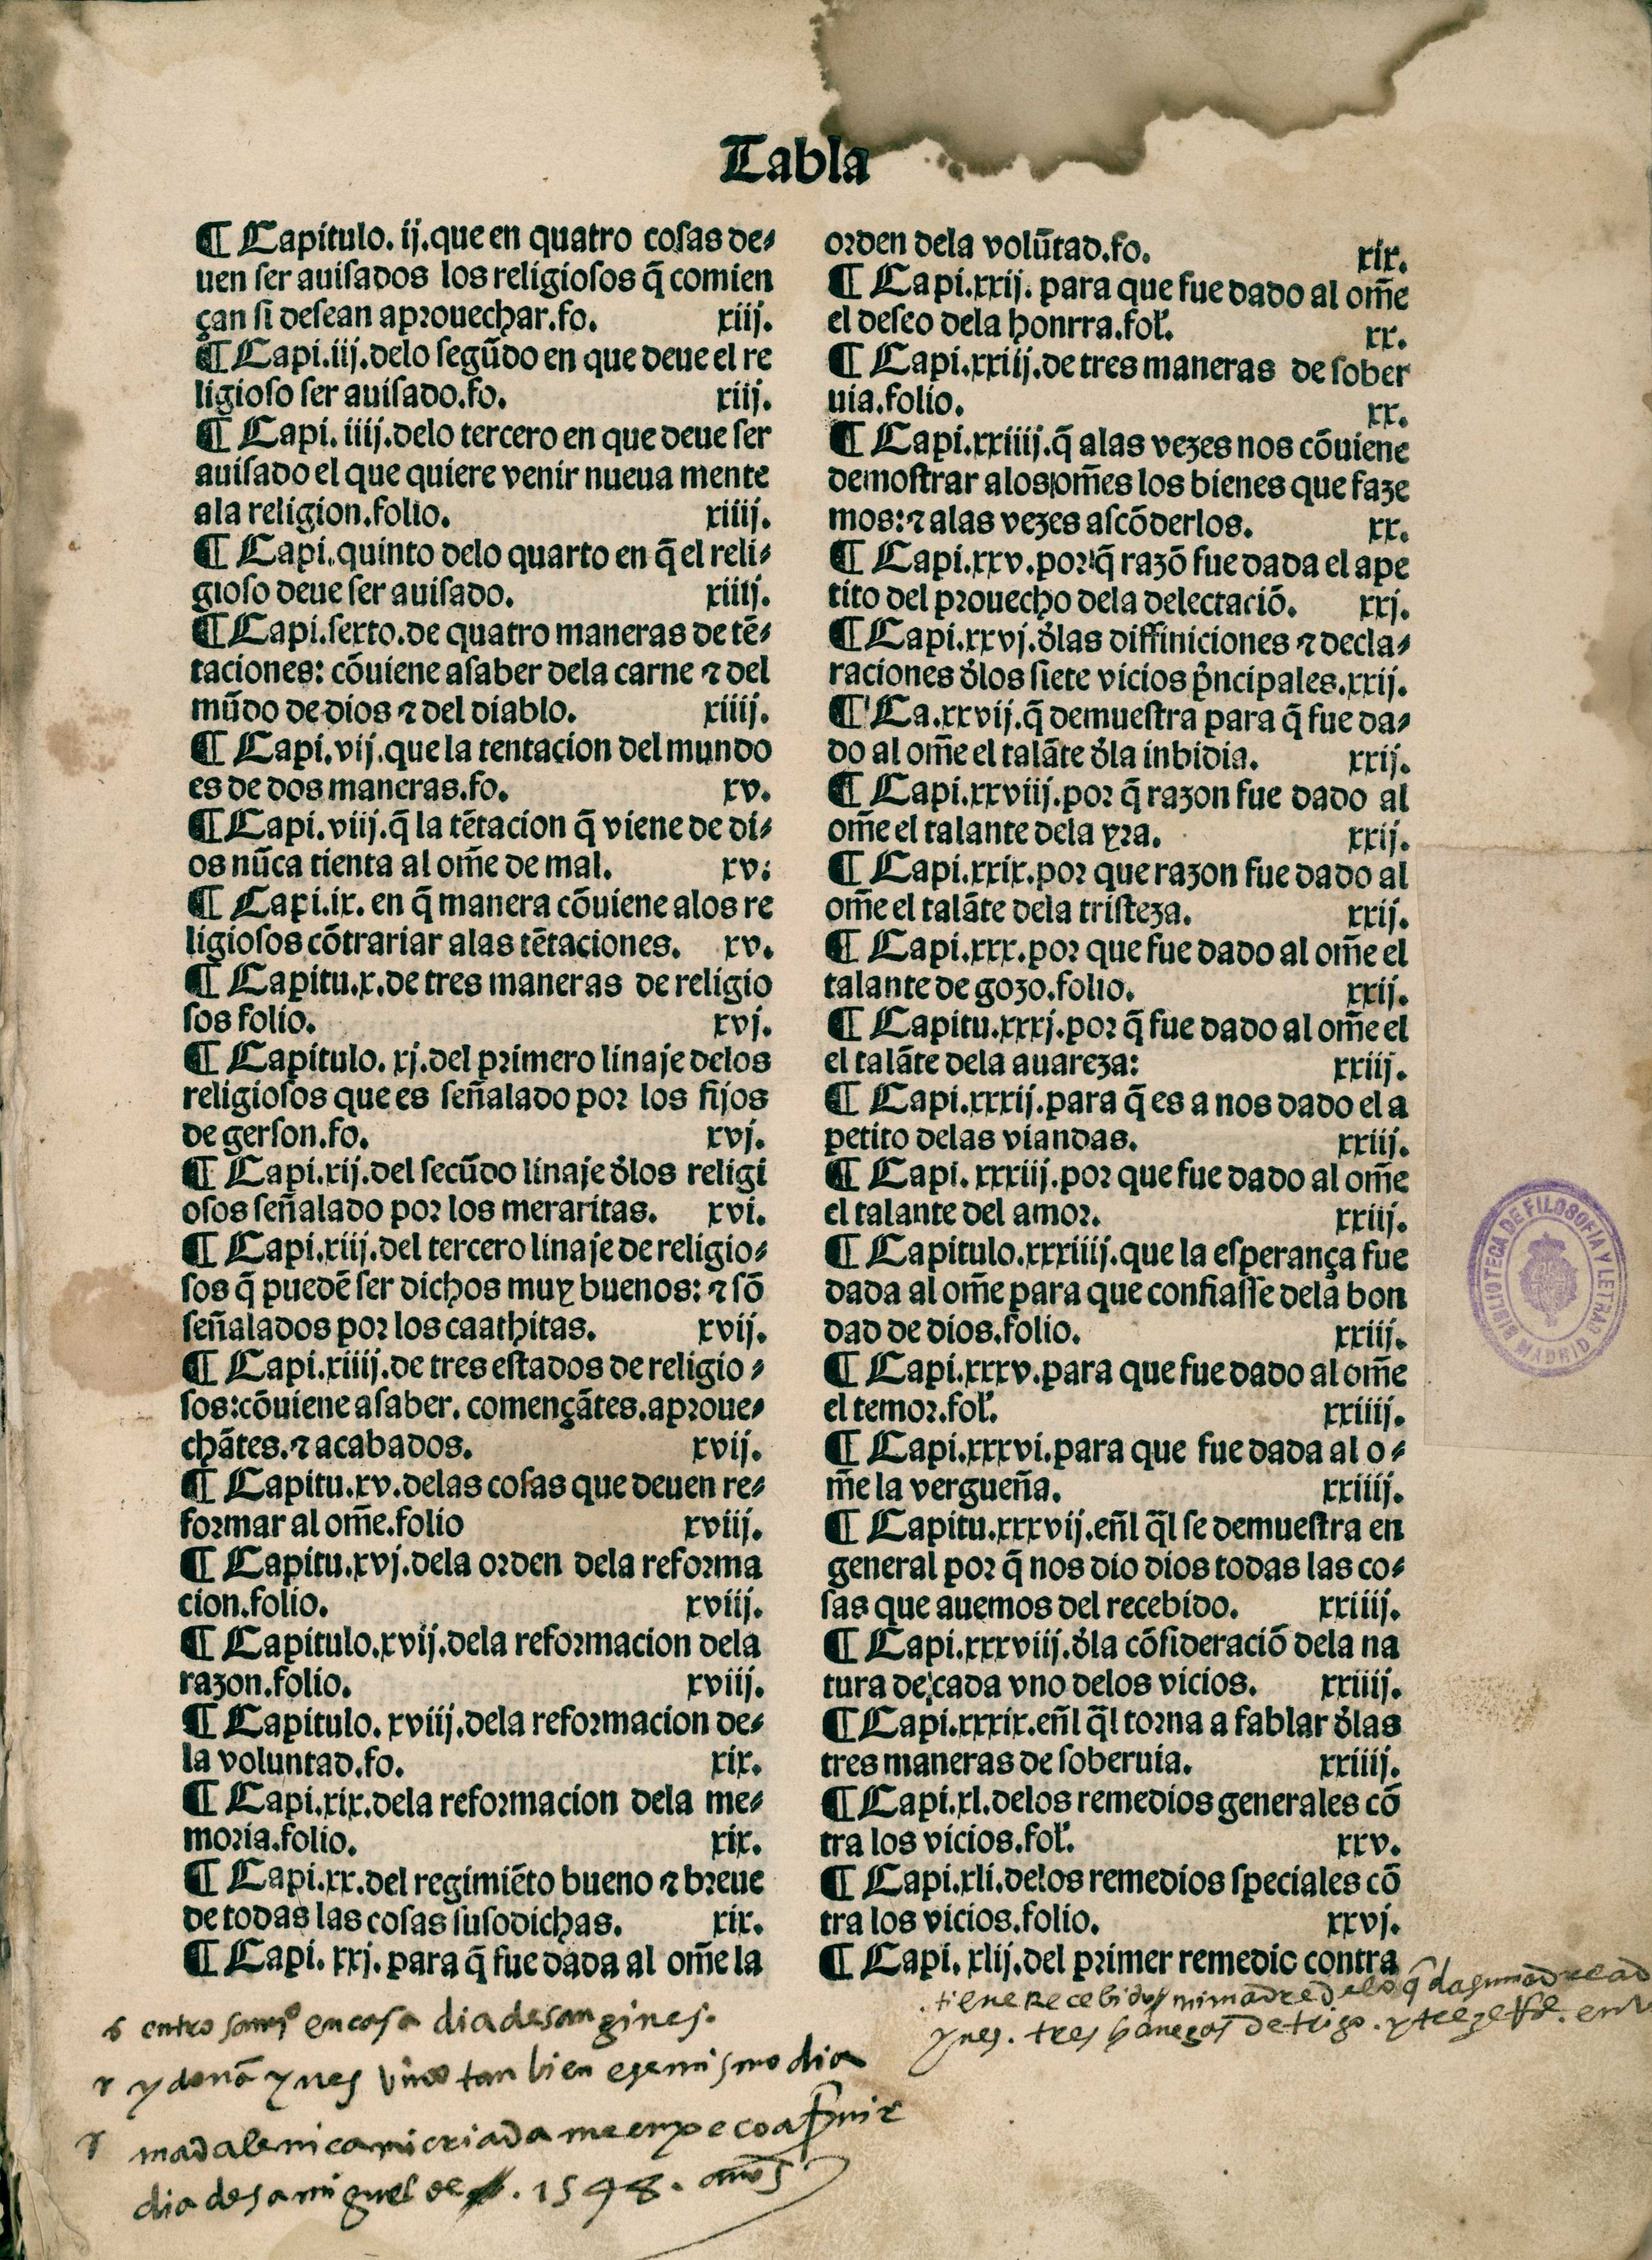 Tabla
¶ Capitulo. ij. que en quatro cosas de-
uen ser auisados los religiosos q̃ comien
çan si desean aprouechar.fo. xiij.
¶ Capi.iij.delo segũdo en que deue el re
ligioso ser auisado.fo. xiij.
¶ Capi. iiij.delo tercero en que deue ser
auisado el que quiere venir nueua mente
ala religion.folio. xiiij.
¶ Capi.quinto delo quarto en q̃ el reli-
gioso deue ser auisado. xiiij.
¶ Capi.sexto.de quatro maneras de tẽ-
taciones: cõuiene asaber dela carne ⁊ del
mũdo de dios ⁊ del diablo. xiiij.
¶ Capi.vij.que la tentacion del mundo
es de dos maneras.fo. xv.
¶ Capi.viij.q̃ la tẽtacion q̃ viene de di-
os nũca tienta al om̃e de mal. xv:
¶ Capi.ix. en q̃ manera cõuiene alos re
ligiosos cõtrariar alas tẽtaciones. xv.
¶ Capitu.x.de tres maneras de religio
sos folio. xvj.
¶ Capitulo. xj.del primero linaje delos
religiosos que es señalado por los fijos
de gerson.fo. xvj.
¶ Capi.xij.del secũdo linaje d̃los religi
osos señalado por los meraritas. xvi.
¶ Capi.xiij.del tercero linaje de religio-
sos q̃ puedẽ ser dichos muy buenos: ⁊ sõ
señalados por los caathitas. xvij.
¶ Capi.xiiij.de tres estados de religio-
sos:cõuiene asaber. començãtes.aproue-
chãtes.⁊ acabados. xvij.
¶ Capitu.xv.delas cosas que deuen re-
formar al om̃e.folio xviij.
¶ Capitu.xvj.dela orden dela reforma
cion.folio. xviij.
¶ Capitulo.xvij.dela reformacion dela
razon.folio. xviij.
¶ Capitulo. xviij.dela reformacion de-
la voluntad.fo. xix.
¶ Capi.xix.dela reformacion dela me-
moria.folio. xix.
¶ Capi.xx.del regimiẽto bueno ⁊ breue
de todas las cosas susodichas. xix.
¶ Capi. xxj. para q̃ fue dada al om̃e la
orden dela volũtad.fo. xix.
¶ Capi.xxij. para que fue dado al om̃e
el deseo dela honrra.fol̃. xx.
¶ Capi.xxiij.de tres maneras de sober
uia.folio. xx.
¶ Capi.xxiiij.q̃ alas vezes nos cõuiene
demostrar alos om̃es los bienes que faze
mos:⁊ alas vezes ascõderlos. xx.
¶ Capi.xxv.por q̃ razõ fue dada el ape
tito del prouecho dela delectaciõ. xxj.
¶ Capi.xxvj.d̃las diffiniciones ⁊ decla-
raciones d̃los siete vicios p̃ncipales.xxij.
¶ Ca.xxvij.q̃ demuestra para q̃ fue da-
do al om̃e el talãte d̃la inbidia. xxij.
¶ Capi.xxviij.por q̃ razon fue dado al
om̃e el talante dela yra. xxij.
¶ Capi.xxix.por que razon fue dado al
om̃e el talãte dela tristeza. xxij.
¶ Capi.xxx.por que fue dado al om̃e el
talante de gozo.folio. xxij.
¶ Capitu.xxxj.por q̃ fue dado al om̃e el
el talãte dela auareza: xxiij.
¶ Capi.xxxij.para q̃ es a nos dado el a
petito delas viandas. xxiij.
¶ Capi. xxxiij.por que fue dado al om̃e
el talante del amor. xxiij.
¶ Capitulo.xxxiiij.que la esperança fue
dada al om̃e para que confiasse dela bon
dad de dios.folio. xxiij.
¶ Capi.xxxv.para que fue dado al om̃e
el temor.fol̃. xxiiij.
¶ Capi.xxxvi.para que fue dada al o-
m̃e la vergueña. xxiiij.
¶ Capitu.xxxvij.eñl q̃l se demuestra en
general por q̃ nos dio dios todas las co-
sas que auemos del recebido. xxiiij.
¶ Capi.xxxviij.d̃la cõsideraciõ dela na
tura de cada vno delos vicios. xxiiij.
¶ Capi.xxxix.eñl q̃l torna a fablar d̃las
tres maneras de soberuia. xxiiij.
¶ Capi.xl.delos remedios generales cõ
tra los vicios.fol̃. xxv.
¶ Capi.xli.delos remedios speciales cõ
tra los vicios.folio. xxvj.
¶ Capi. xlij.del primer remedio contra
entro en casa dia de san gines.
y donã ynes vino tan bien ese mismo dia
madalenica mi criada me enpeço a
dia de sa miguel de 1548. años
tiene Recebidos mi madre
ynes. tres hanegas de trigo. y
BIBLIOTECA DE FILOSOFIA Y LETRAS MADRID